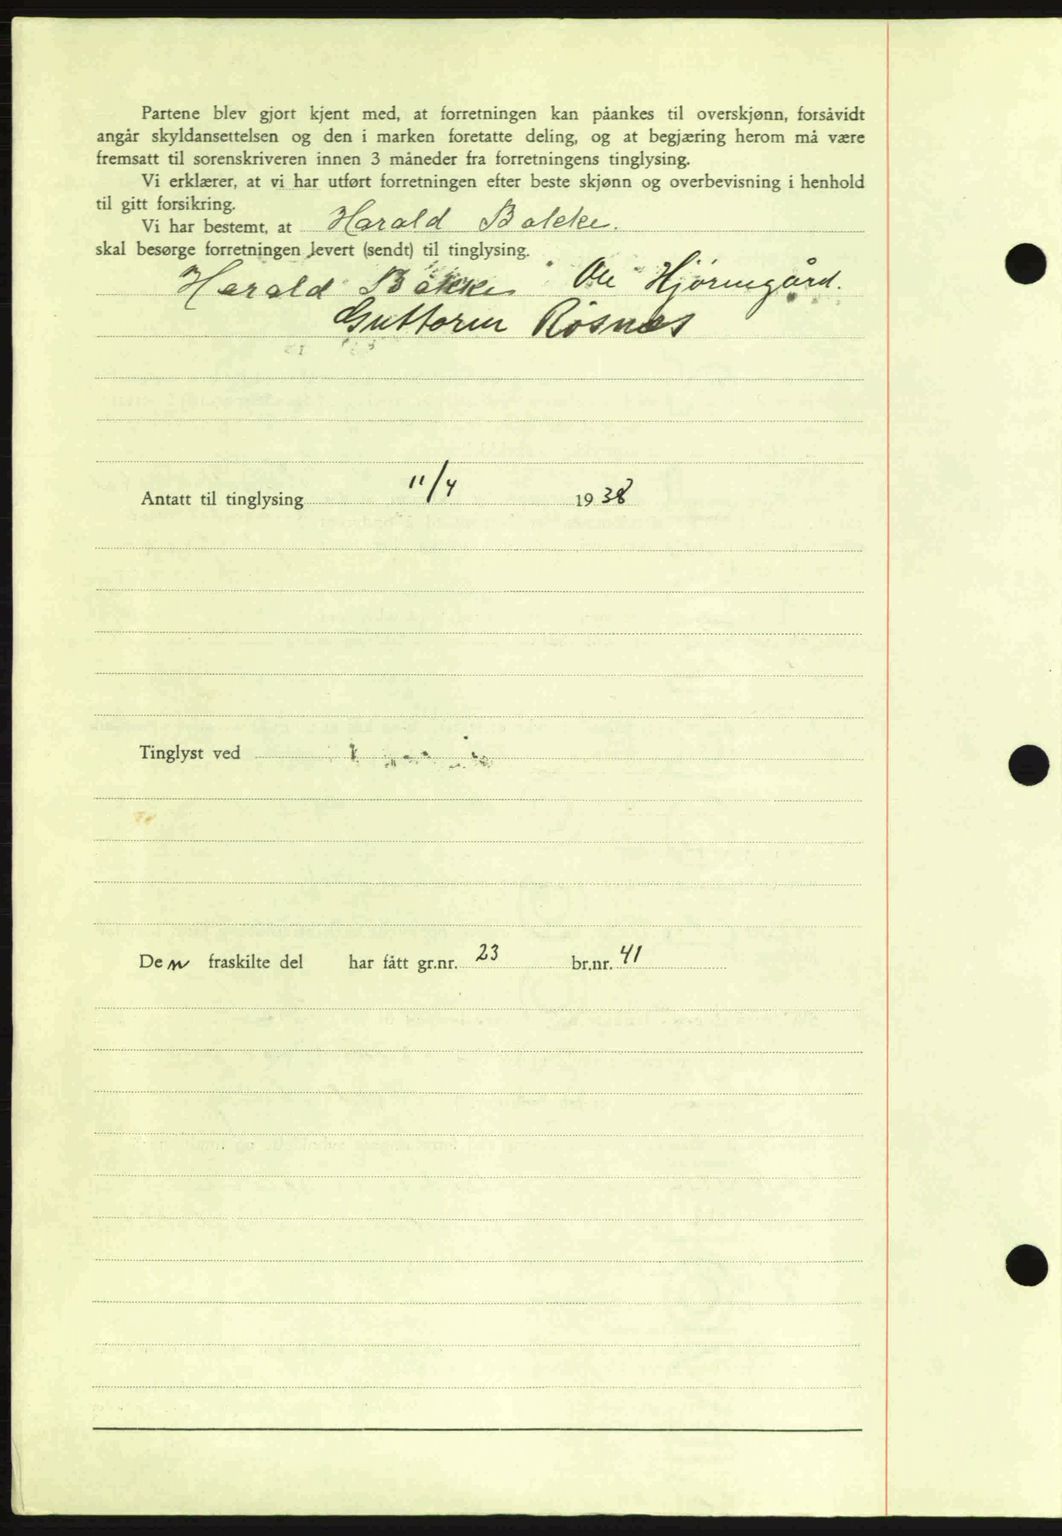 Partene blev gjort kjent med, at forretningen kan påankes til overskjønn, forsåvidt
angår skyldansettelsen og den i marken foretatte deling, og at begjæring herom må være
fremsatt til sorenskriveren innen 3 måneder fra forretningens tinglysing.
Vi erklærer, at vi har utført forretningen efter beste skjønn og overbevisning i henhold
til gitt forsikring.
Vi har bestemt, at Harald Bakke.
skal besørge forretningen levert (sendt) til tinglysing.
Harald Bakke Ole Hjörnegård.
Guttorm Rösnes
Antatt til tinglysing 11/4 1938
Tinglyst ved
Den fraskilte del har fått gr.nr. 23 br.nr. 41